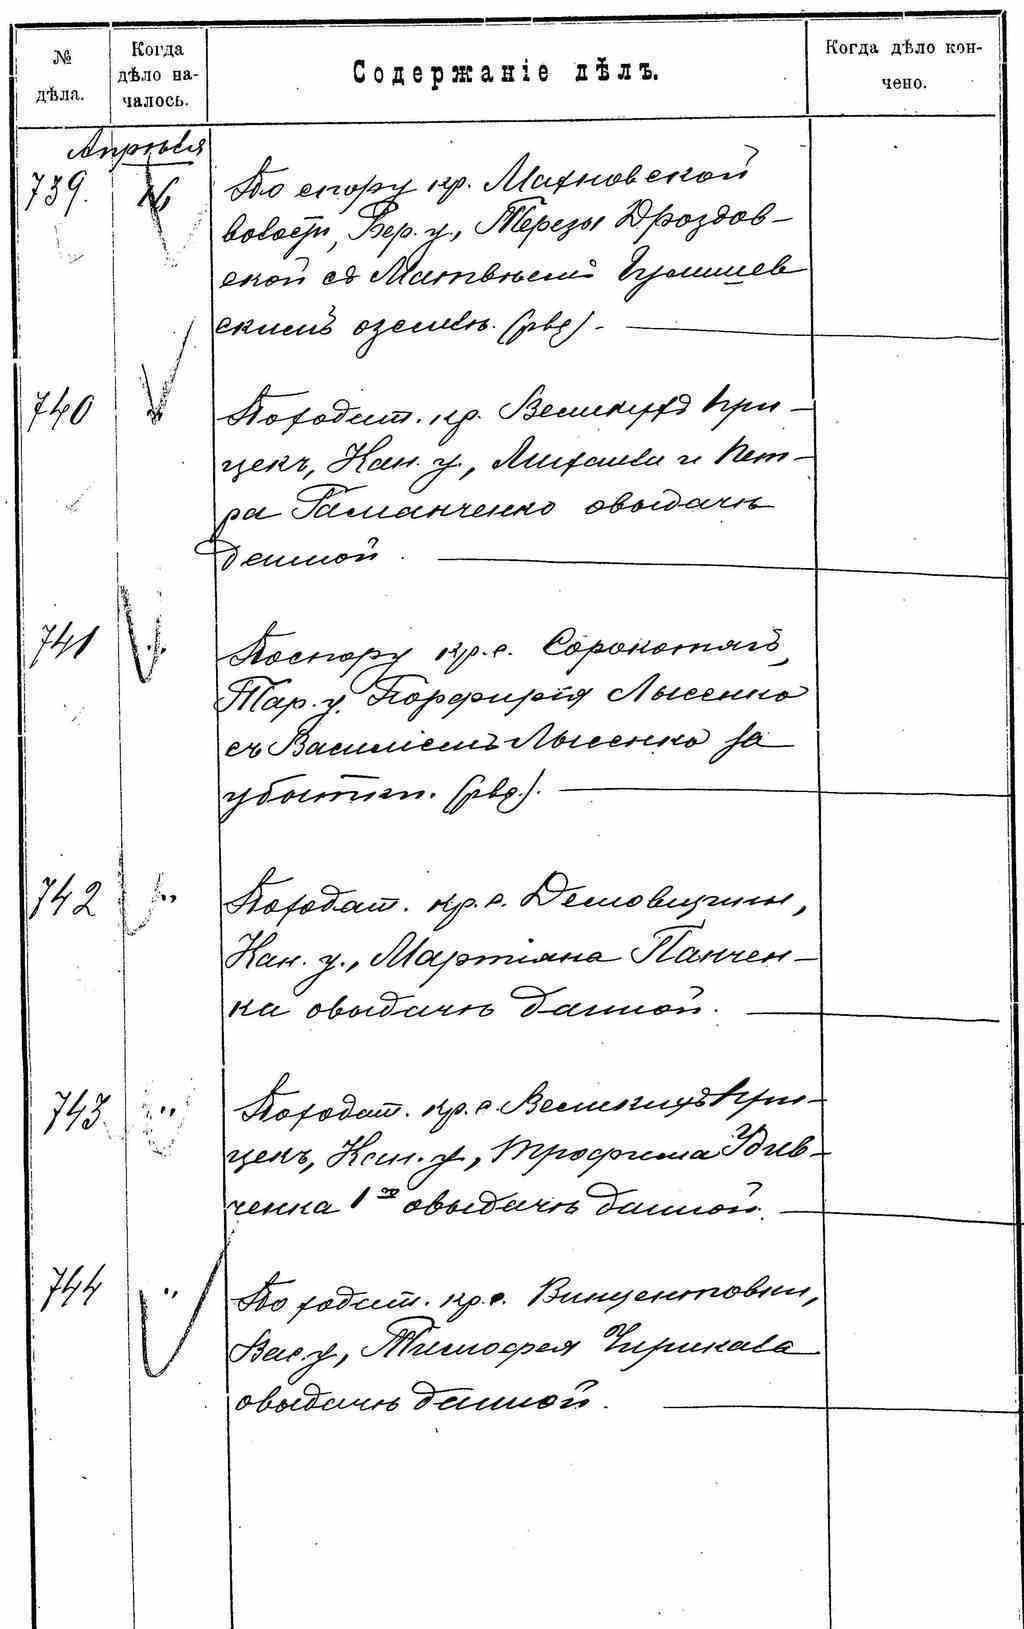 № дѣла.
Когда дѣло началось.
Содержаніе дѣлъ.
Когда дѣло кончено.
Апрѣля
739. 16
По спору кр. Махновской
волости, Бер. у., Терезы Дроздов-
ской съ Матвѣемъ
скимъ о землѣ. (рвд).
740
Походат. кр. Великихъ При-
цекъ, Кан. у., Михаила и Пет-
ра Романченко о выдачѣ
данной.
741 „
По спору кр. с. Сорокотягъ,
Тар. у. Порфирія Лысенко
съ Василіемъ Лысенко за
убытки. (рвд.).
742 „
Походат. кр. с. Демовщины,
Кан. у., Мартіана Панчен-
ка о выдачѣ данной.
743 „
Походат. кр. с. Великихъ При-
цекъ, Кан. у., Трофима Удов-
ченка 1го о выдачѣ данной.
744 „
По ходат. кр. с. Винцентовки,
Вас. у., Тимофея Чирикала
о выдачѣ данной.